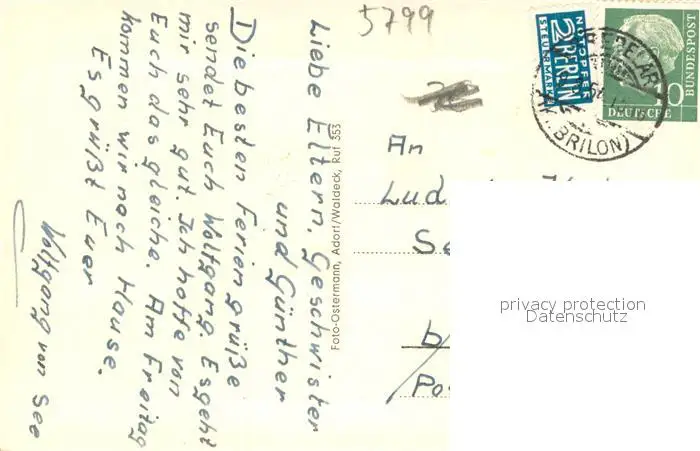 5799
Liebe Eltern, Geschwister
und Günther
Die besten Feriengrüße
sendet Euch Wolfgang. Es geht
mir sehr gut. Ich hoffe von
Euch das gleiche. Am Freitag
kommen wir nach Hause.
Es grüßt Euer
Wolfgang von See
Foto-Ostermann, Adorf/Waldeck, Ruf 353
NOTOPFER
2 BERLIN
STEUERMARKE
DEUTSCHE
BUNDESPOST
10
BRILON)
An
privacy protection
Datenschutz